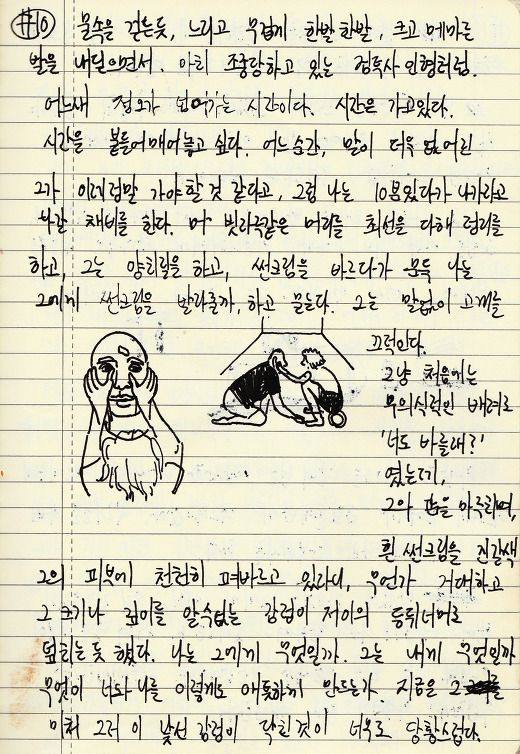 #10
물속을 걷는듯, 느리고 무겁게 한발 한발, 크고 메마른
발을 내딛으면서. 마치 조종당하고 있는 꼭두각시 인형처럼.
어느새 정오가 넘어가는 시간이다. 시간은 가고있다.
시간을 붙들어 매어놓고 싶다. 어느순간, 말이 더욱 없어진
그가 이제정말 가야할 것 같다고, 그럼 나는 10분있다가 나가라고
나갈 채비를 한다. 머리를 최선을 다해 정리를
하고, 그는 양치질을 하고, 썬크림을 바르다가 문득 나는
그에게 썬크림을 발라줄까, 하고 묻는다. 그는 말없이 고개를
끄덕인다.
그냥 처음에는
무의식적인 배려로
'너도 바를래?'
였는데,
그의 을 마주하며,
흰 썬크림을 진갈색
그의 피부에 천천히 펴바르고 있자니, 무언가 거대하고
그 크기나 깊이를 알수없는 감정이 저이의 등뒤너머로
덮치는듯 했다. 나는 그에게 무엇일까. 그는 내게 무엇일까
무엇이 너와 나를 이렇게도 애틋하게 만드는가. 지금은
미처 그저 이 낯선 감정이 닥친것이 너무도 당황스럽다.